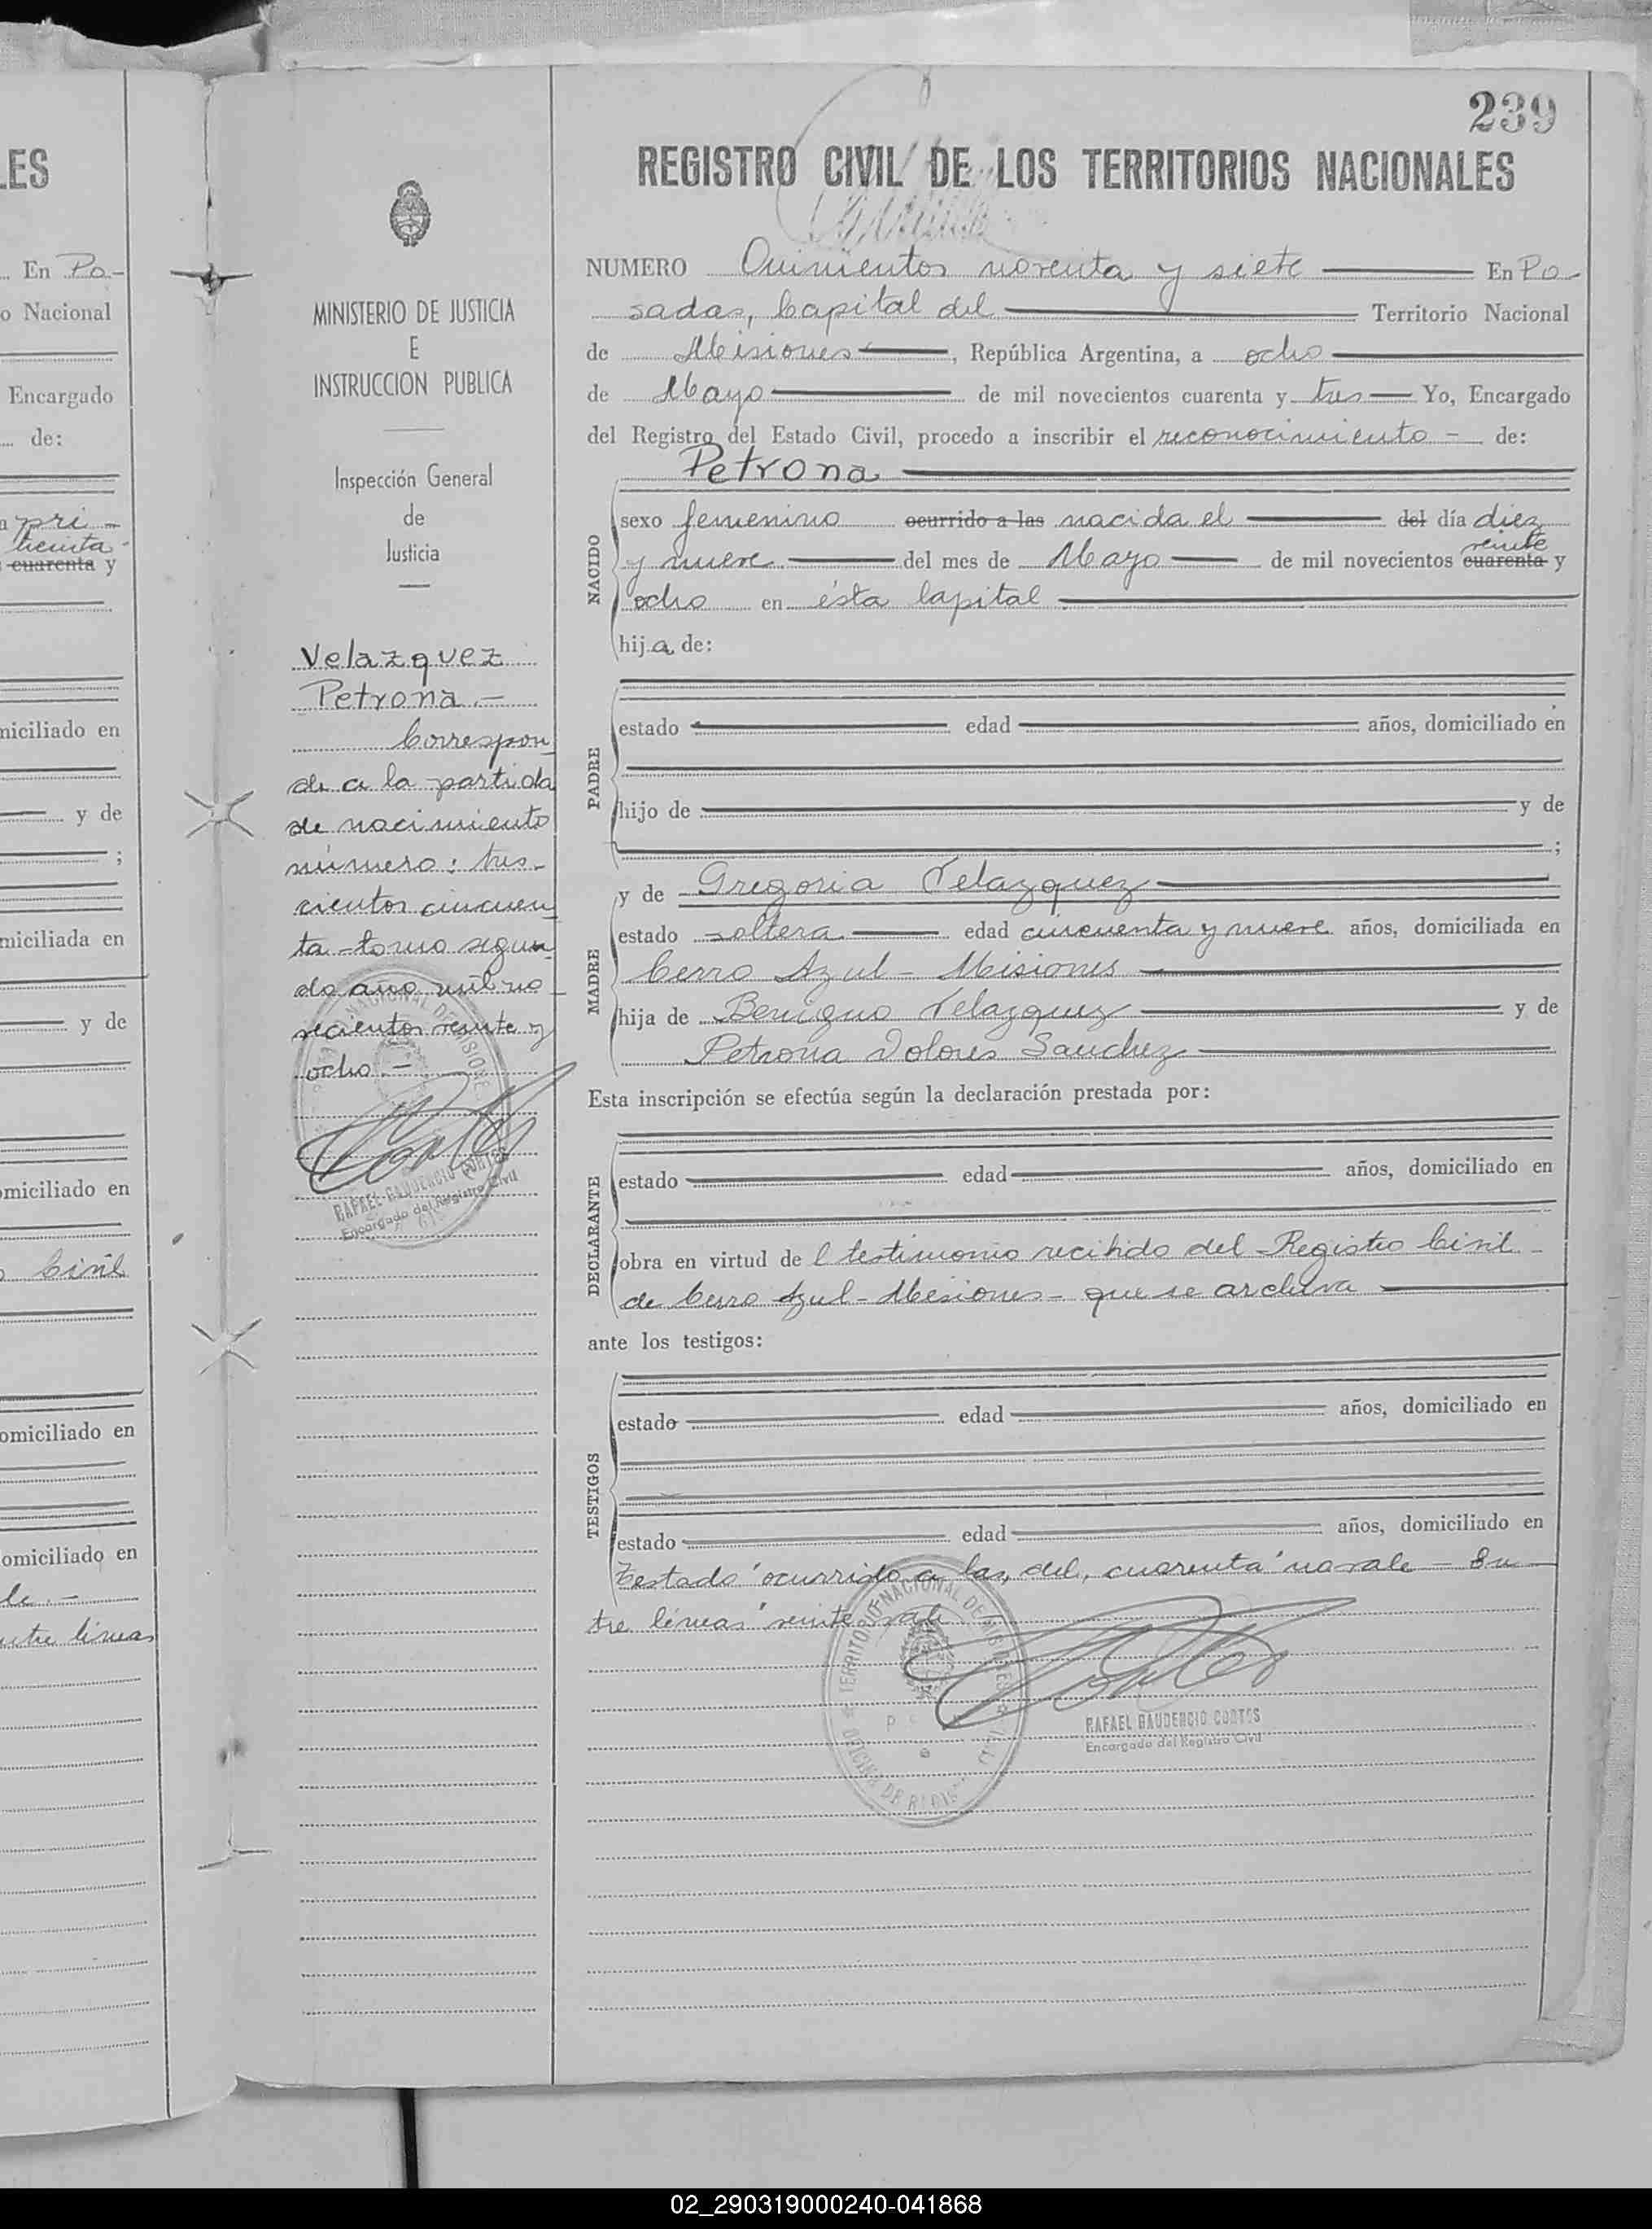 LES
En Po-
o Nacional
Encargado
de:
a pri-
treinta-
cuarenta y
miciliado en
y de
;
miciliada en
y de
omiciliado en
o Civil
omiciliado en
omiciliado en
le.-
ntre lineas
MINISTERIO DE JUSTICIA
E
INSTRUCCION PUBLICA
Inspección General
de
Justicia
Velazquez
Petrona.-
Correspon-
de a la partida
de nacimiento
número: tres-
cientos cincuen
ta-tomo segun-
do año mil no-
vecientos veinte y
ocho.-
RAFAEL GAUDENCIO CORTES
Encargado del Registro Civil
239
REGISTRO CIVIL DE LOS TERRITORIOS NACIONALES
NUMERO Quinientos noventa y siete En Po-
sadas, Capital del Territorio Nacional
de Misiones, República Argentina, a ocho
de Mayo de mil novecientos cuarenta y tres Yo, Encargado
del Registro del Estado Civil, procedo a inscribir el reconocimiento - de:
Petrona
NACIDO
sexo femenino ocurrido a las nacida el del día diez
veinte
y nueve del mes de Mayo de mil novecientos cuarenta y
ocho en ésta Capital
hija de:
PADRE
estado edad años, domiciliado en
hijo de y de
;
MADRE
y de Gregoria Velazquez
estado soltera edad cincuenta y nueve años, domiciliada en
Cerro Azul - Misiones
hija de Benigno Velazquez y de
Petrona Dolores Sanchez
Esta inscripción se efectúa según la declaración prestada por:
DECLARANTE
estado edad años, domiciliado en
obra en virtud de l testimonio recibido del Registro Civil-
de Cerro Azul - Misiones - que se archiva
ante los testigos:
TESTIGOS
estado edad años, domiciliado en
estado edad años, domiciliado en
Testado "ocurrido a las, del, cuarenta" no vale - En-
tre líneas "veinte" vale
TERRITORIO NACIONAL DE MISIONES
RAFAEL GAUDENCIO CORTES
Encargado del Registro Civil
02_290319000240-041868